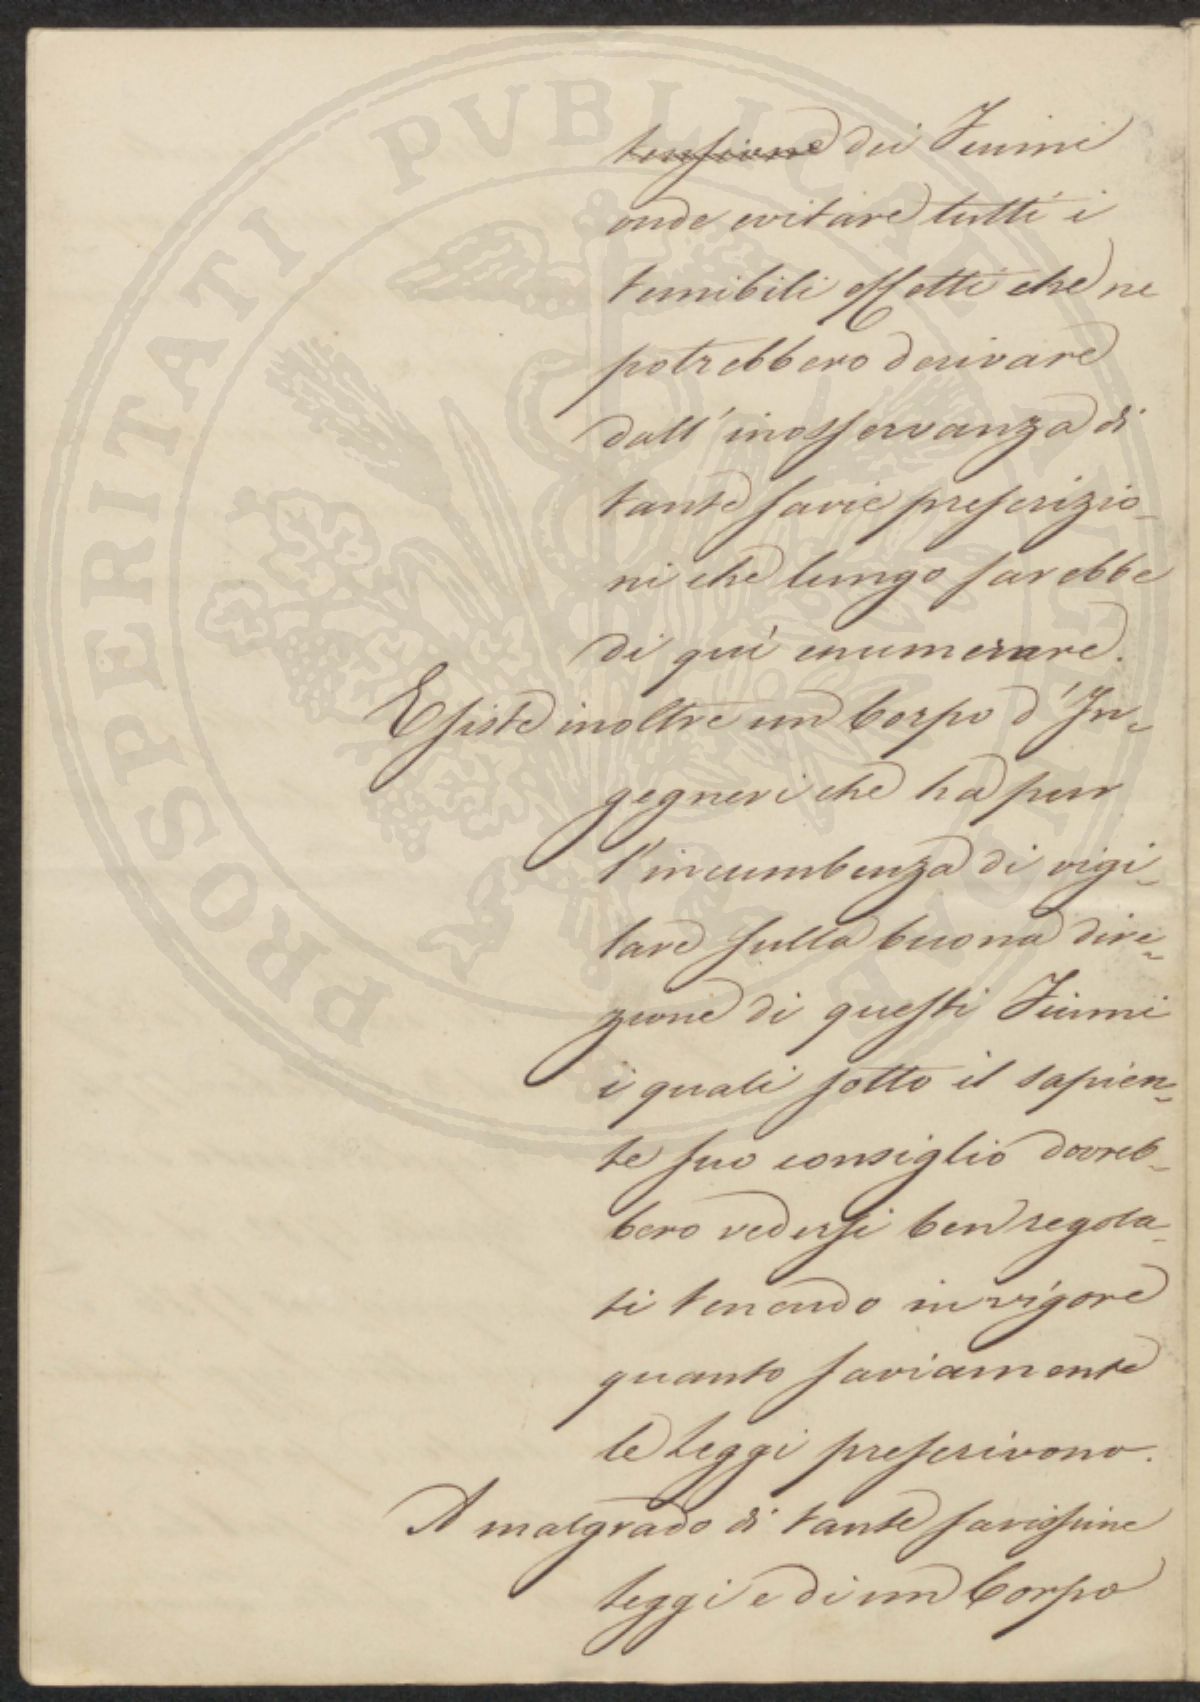 tensione dei Fiumi
onde evitare tutti i
temibili effetti che ne
potrebbero derivare
dall'inosservanza di
tante savie prescrizio-
ni che lungo sarebbe
di quì enumerare.
Esiste inoltre un Corpo d'In-
gegneri che ha pur
l'incumbenza di vigi-
lare sulla buona dire-
zione di questi Fiumi
i quali sotto il sapien-
te suo consiglio dovreb-
bero vedersi ben regola-
ti tenendo in vigore
quanto saviamente
le Leggi prescrivono.
A malgrado di tante savissime
Leggi e di un Corpo
PROSPERITATI PVBLICAE AVGENDAE